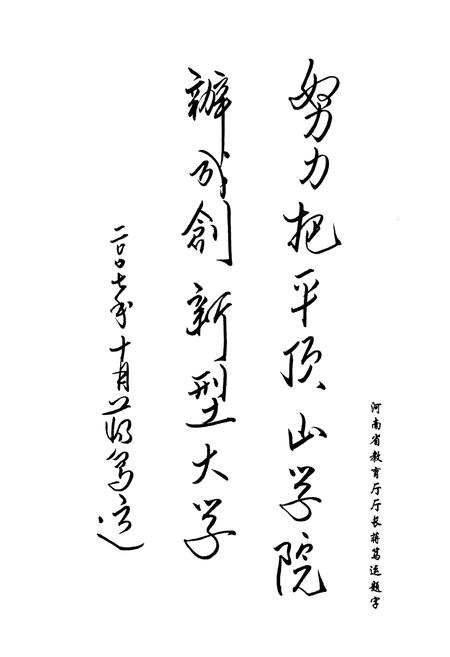 努力把平顶山学院
辦成創新型大学
二〇〇七年十月蒋笃运
河南省教育厅厅长蒋笃运题字